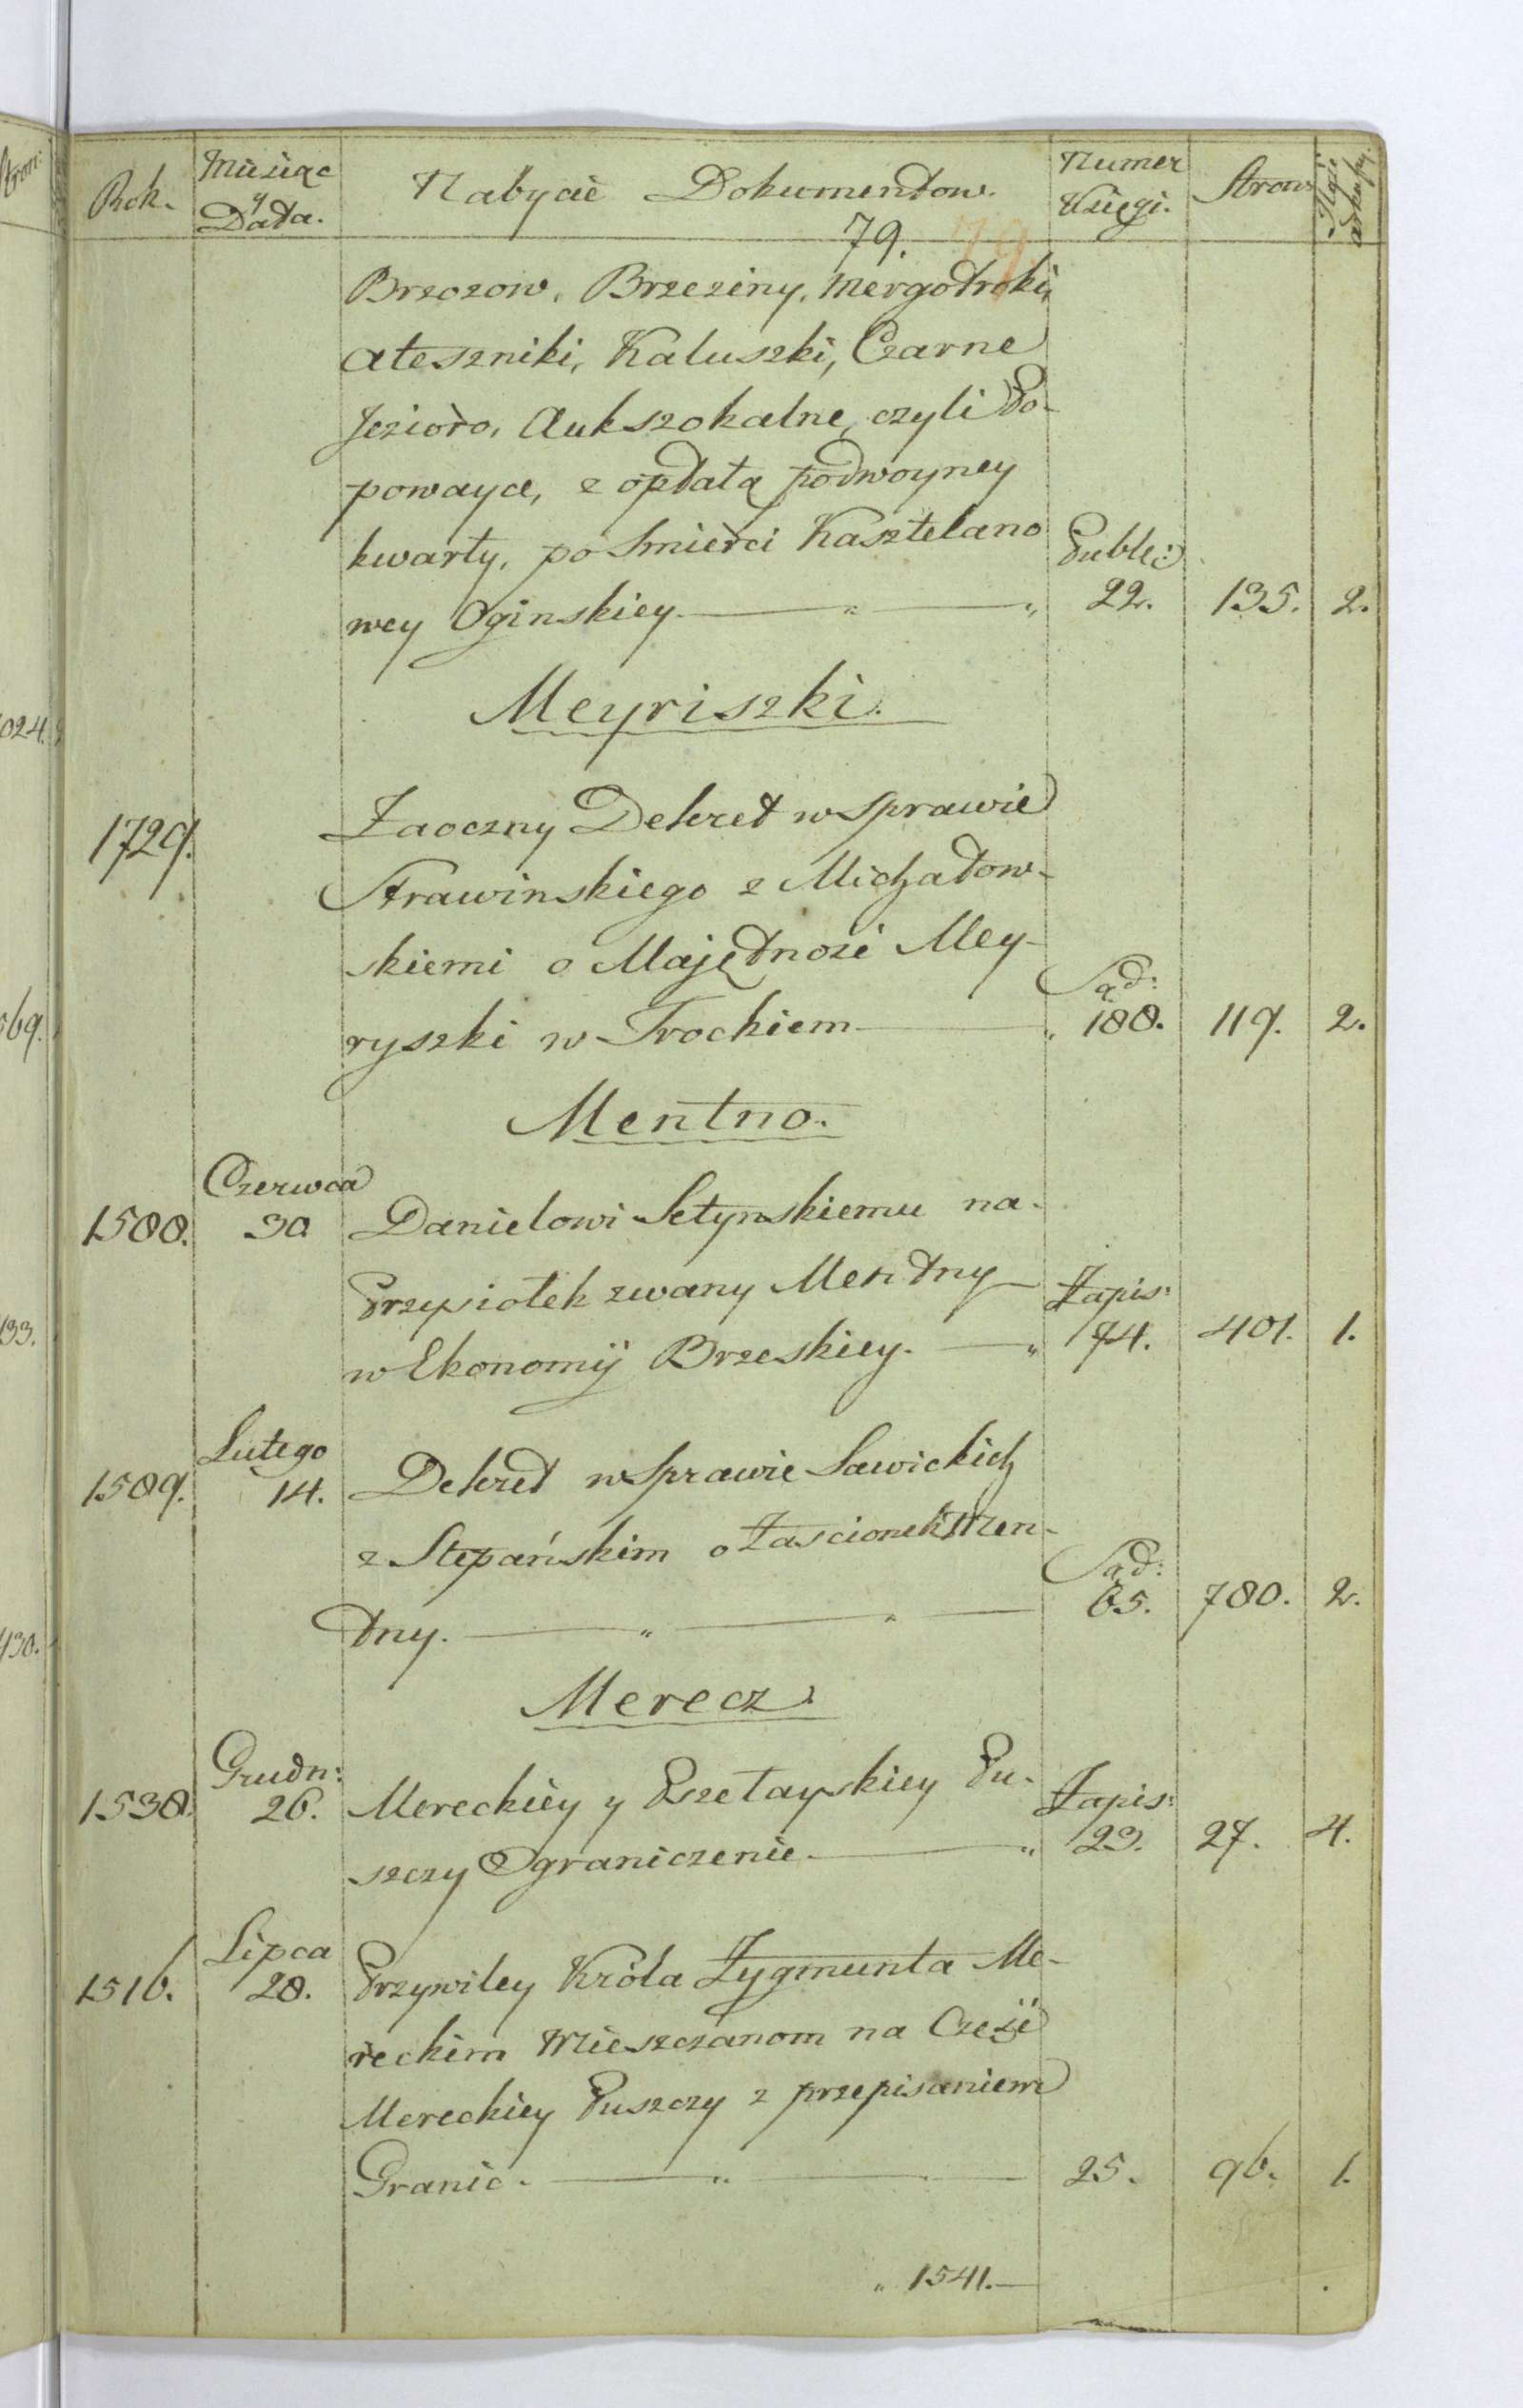 Rok.
Miesiąc
y
Data.
Nabycie Dokumentow.
Numer
Księgi.
Stron.
Ilość
arkuszy.
79. 79.
Brzozow, Brzeziny, Mergotroki,
Ateszniki, Kaluszki, Czarne
Jezioro, Aukszokalne, czyli Po-
powayce, z opłatą podwoyney
kwarty, po śmierci Kasztelano
wey Oginskiey. Public:
22. 135. 2.
Meyriszki.
1729. Zaoczny Dekret w sprawie
Strawinskiego z Michałow-
skiemi o Majętność Mey-
ryszki w Trockiem Sąd:
188. 119. 2.
Mentno.
1588. Czerwca
30 Danielowi Setynskiemu na
Przysiołek zwany Mentny
w Ekonomij Brzeskiey. Zapis:
74. 401. 1.
1589. Lutego
14. Dekret w Sprawie Sawickich
z Stepańskim o Zascionek Men-
tny. Sąd:
65. 780. 2.
Merecz.
1538. Grudn:
26. Mereckiey y Pszełayskiey Pu-
szczy Ograniczenie. Zapis:
23. 27. 4.
1516. Lipca
28. Przywiley Króla Zygmunta Me-
reckim Mieszczanom na Część
Mereckiey Puszczy z przepisaniem
Granic. 25. 96. 1.
1541.